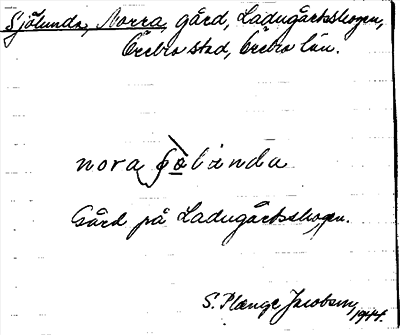 Sjölunda, Norra, gård, Ladugårdsskogen,
Örebro stad, Örebro län.
nora
Gård på Ladugårdsskogen.
S. Plænge Jacobsen, 1944.